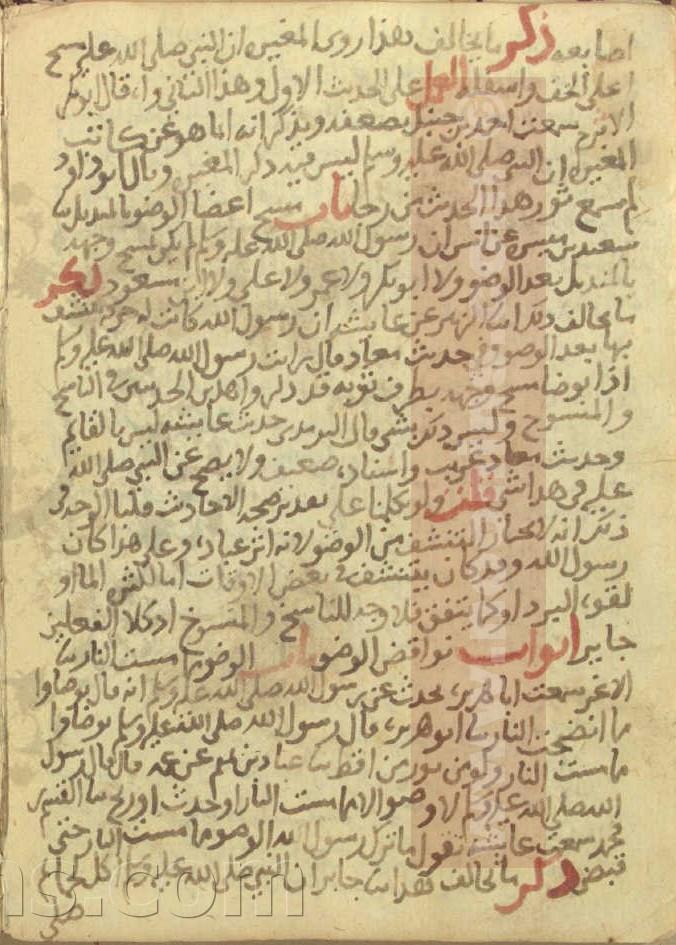 اصابعه ذكر ما يخالف هذا روى المغيرة ان النبي صلى الله عليه مسح
اعلى الخف واسفله العمل على الحديث الاول وهذا الثاني قال ابو بكر
الاثرم سمعت احمد بن حنبل يضعفه ويذكر انه انما هو عن كاتب
المغيرة ان النبي صلى الله عليه وسلم ليس فيه ذكر المغيرة وقال ابو داود
لم يسمع ثور هذا الحديث من رجا باب مسح اعضا الوضو بالمنديل
سعيد بن ميسرة عن انس ان رسول الله صلى الله عليه وسلم لم يكن يمسح وجهه
بالمنديل بعد الوضو ولا ابو بكر ولا عمر ولا علي ولا ابن مسعود ذكر
ما يخالف ذلك الزهري عن عايشة ان رسول الله كانت له خرقة ينشف
بها بعد الوضو وفي حديث معاد قال رايت رسول الله صلى الله عليه وسلم
اذا توضا مسح وجهه بطرف ثوبه قد ذكر واهذين الحديثين في الناسخ
والمنسوخ وليس ذلك بشي قال الترمدي حديث عايشة ليس بالقايم
وحديث معاد غريب واسناده ضعيف ولا يصح عن النبي صلى الله
عليه في هذا شي قلت ولو تكلمنا على تقدير صحة الاحاديث قلنا الوجه في
ذكر انه لا يختار التنشف من الوضو لانه اثر عبادة وعلى هذا كان
رسول الله وقد كان يتنشف في بعض الاوقات اما لكثرة الما او
لقوة البرد او كما يتفق فلا وجه للناسخ والمنسوخ اد كلا الفعلين
جايز ابواب نواقض الوضو باب الوضو مما مست النار
الاغر سمعت ابا هريرة يحدث عن رسول الله صلى الله عليه وسلم انه قال توضاوا
ما انضجت النار ابو هريرة قال رسول الله صلى الله عليه وسلم توضاوا
مما مست النار ولو من ثور من اقط عباد بن تميم عن عمه قال قال رسول
الله صلى الله عليه وسلم لا وضو الا مما مست النار او حدث او ريح القسم بن
محمد سمعت عايشة تقول ما ترك رسول الله الوضو مما مست النار حتى
قبض ذكر ما يخالف هذا جابر ان النبي صلى الله عليه وسلم اكل لحما ثم
صلى